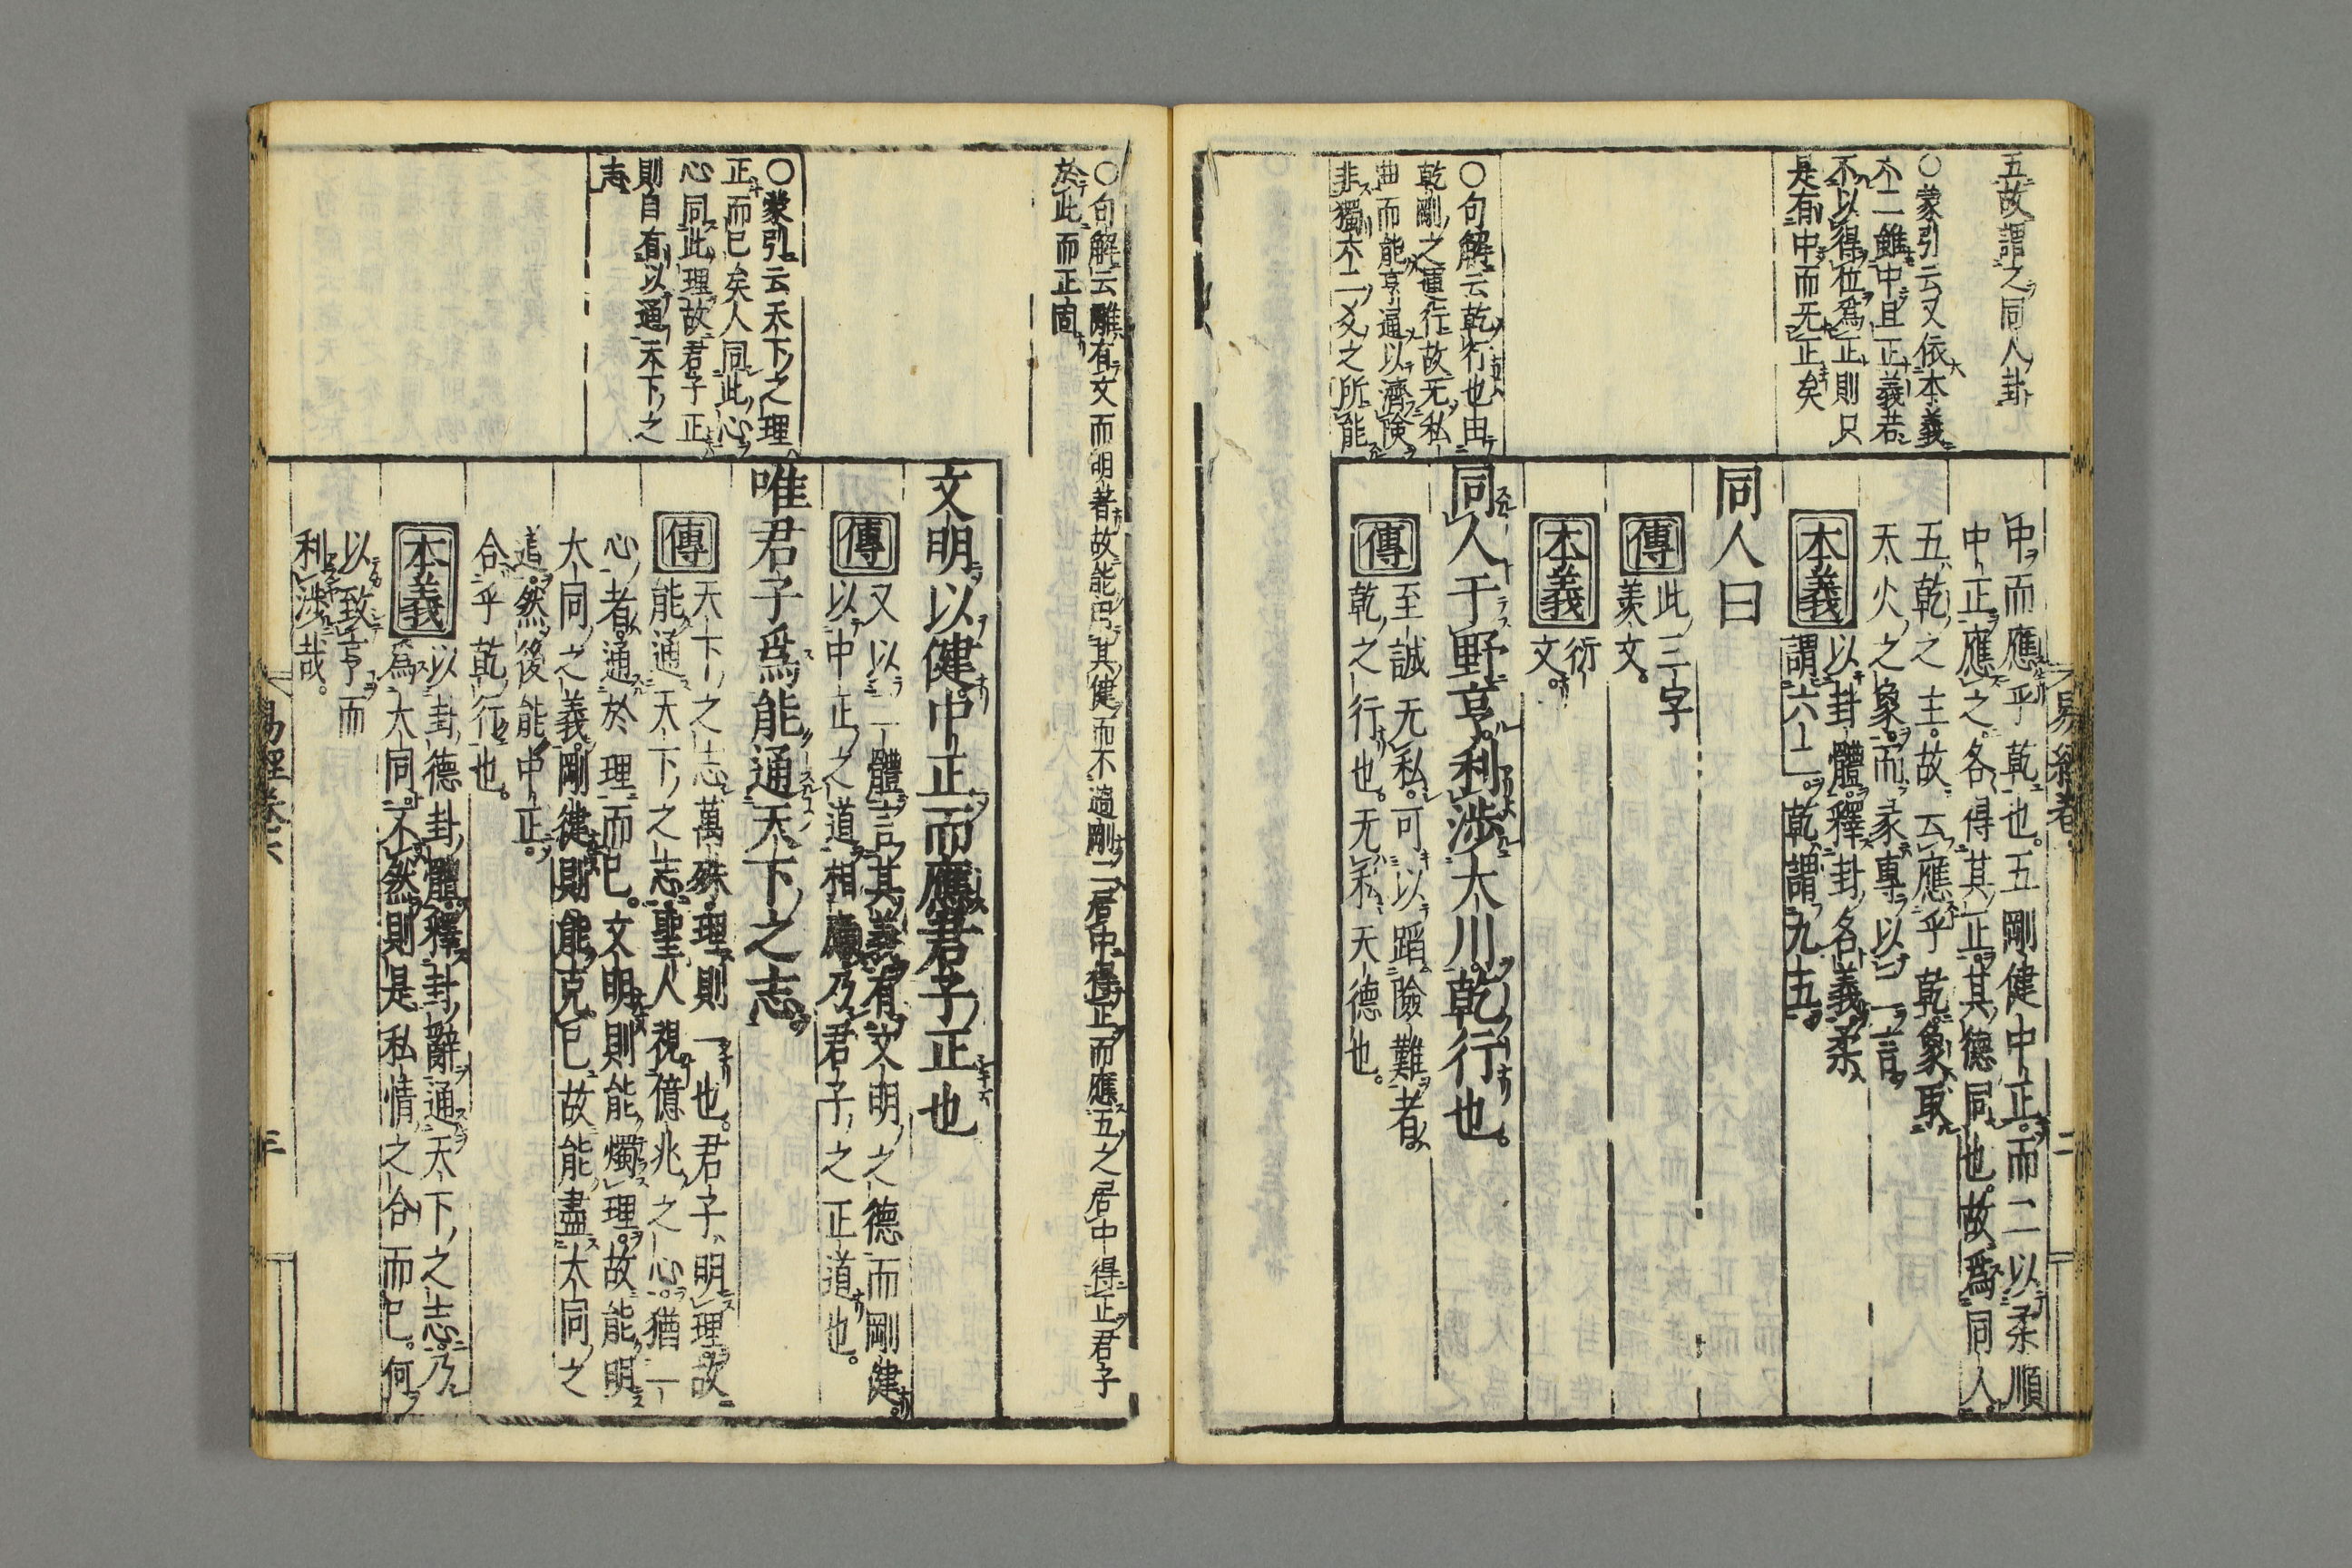 五故謂之同人卦
○蒙引云又依本義
不二雖中且正義若
不以得位爲正則只
是有中而无正矣
○句解云乾行也由
乾剛之道行故无私
曲而能亨通以濟険
非獨六二爻之所能
中而應乎乾也。五剛健中正。而二以柔順
中正應之。各得其正。其德同也。故爲同人。
五乾之主。故云應乎乾。象取
天火之象。而彖專以二言。
本義
以卦體。釋卦名義。柔
謂六二。乾謂九五。
同人曰
傳
此三字
羨文。
本義
衍
文。
同人于野亨。利涉大川。乾行也。
傳
至誠无私。可以蹈險難者。
乾之行也。无私天德也。
易經卷
二
○句解云離有文而明者故能同其健而不過剛二居中得正而應五之居中得正君子
於此而正固
○蒙引云天下之理
正而已矣人同此心
心同此理故君子正
則自有以通天下之
志
文明以健。中正而應。君子正也
傳
又以二體言其義。有文明之德。而剛健。
以中正之道相應。乃君子之正道也。
唯君子爲能通天下之志。
傳
天下之志萬殊。理則一也。君子明理。故
能通天下之志。聖人視億兆之心。猶一
心者。通於理而已。文明則能燭理。故能明
大同之義。剛健則能克己。故能盡大同之
道。然後能中正。
合乎乾行也。
本義
以卦德卦體。釋卦辭。通天下之志。乃
爲大同。不然則是私情之合而已。何
以致亨而
利涉哉。
易經卷六
三